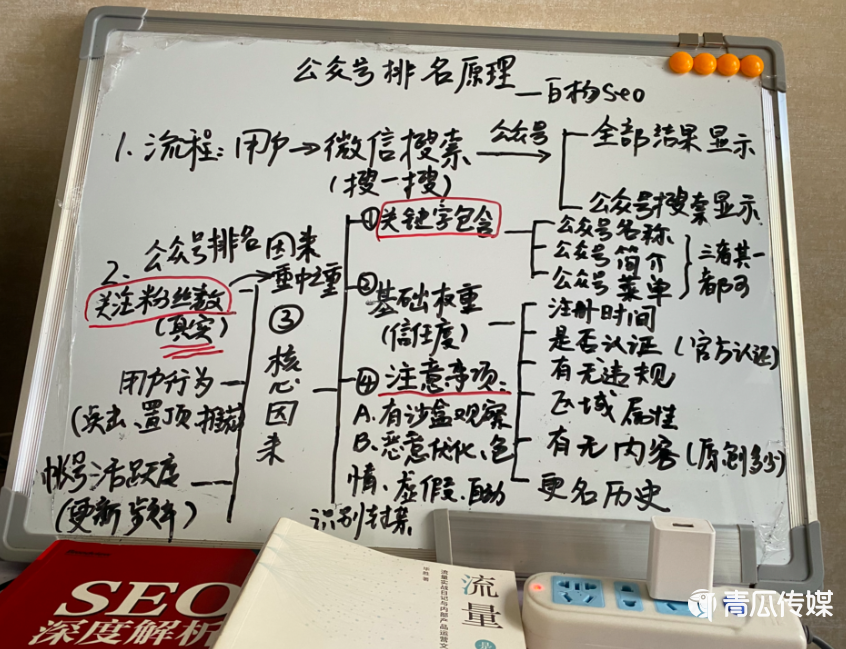 公众号排名原理—百构Seo
1. 流程：用户→微信搜索 公众号→ 全部结果显示
(搜一搜)
公众号搜索显示
2、公众号排名因素
①关键字包含
公众号名称
公众号简介
公众号菜单
三者其一都可
关注粉丝数
(真实)
重中之重
③核心因素
用户行为
(点击、置顶、推荐)
帐号活跃度
(更新频率)
②基础权重
(信任度)
注册时间
是否认证(官方认证)
有无违规
区域属性
有无内容(原创多少)
更名历史
④注意事项：
A.有沙盒观察
B.恶意优化、色
情、虚假、自动
识别封禁
SEO
深度解析
流量
流量实战日记与内部产品运营文
华胜 著
青瓜传媒